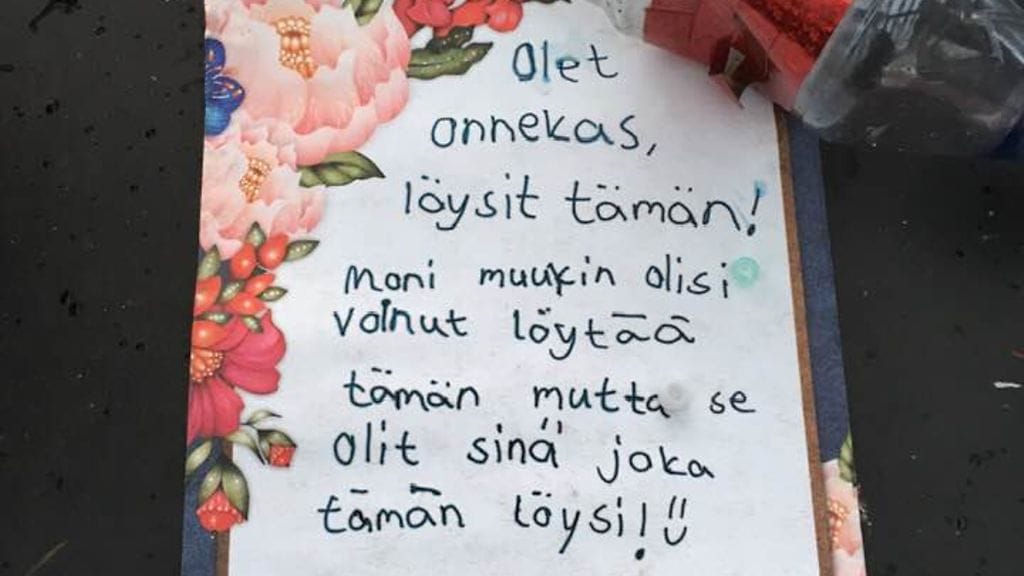 Olet
onnekas,
löysit tämän!
Moni muukin olisi
voinut löytää
tämän mutta se
olit sinä joka
tämän löysi! ü